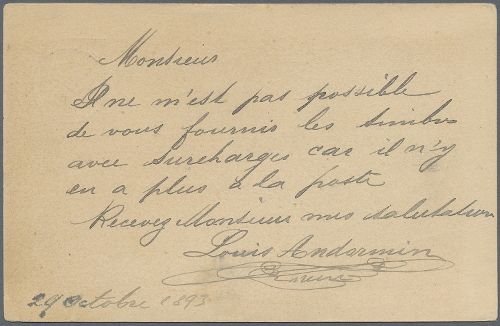 Monsieur
Il ne m'est pas possible
de vous fournir les timbres
avec surcharges car il n'y
en a plus à la poste
Recevez Monsieur mes salutation
Louis Andermin
29 Octobre 1893